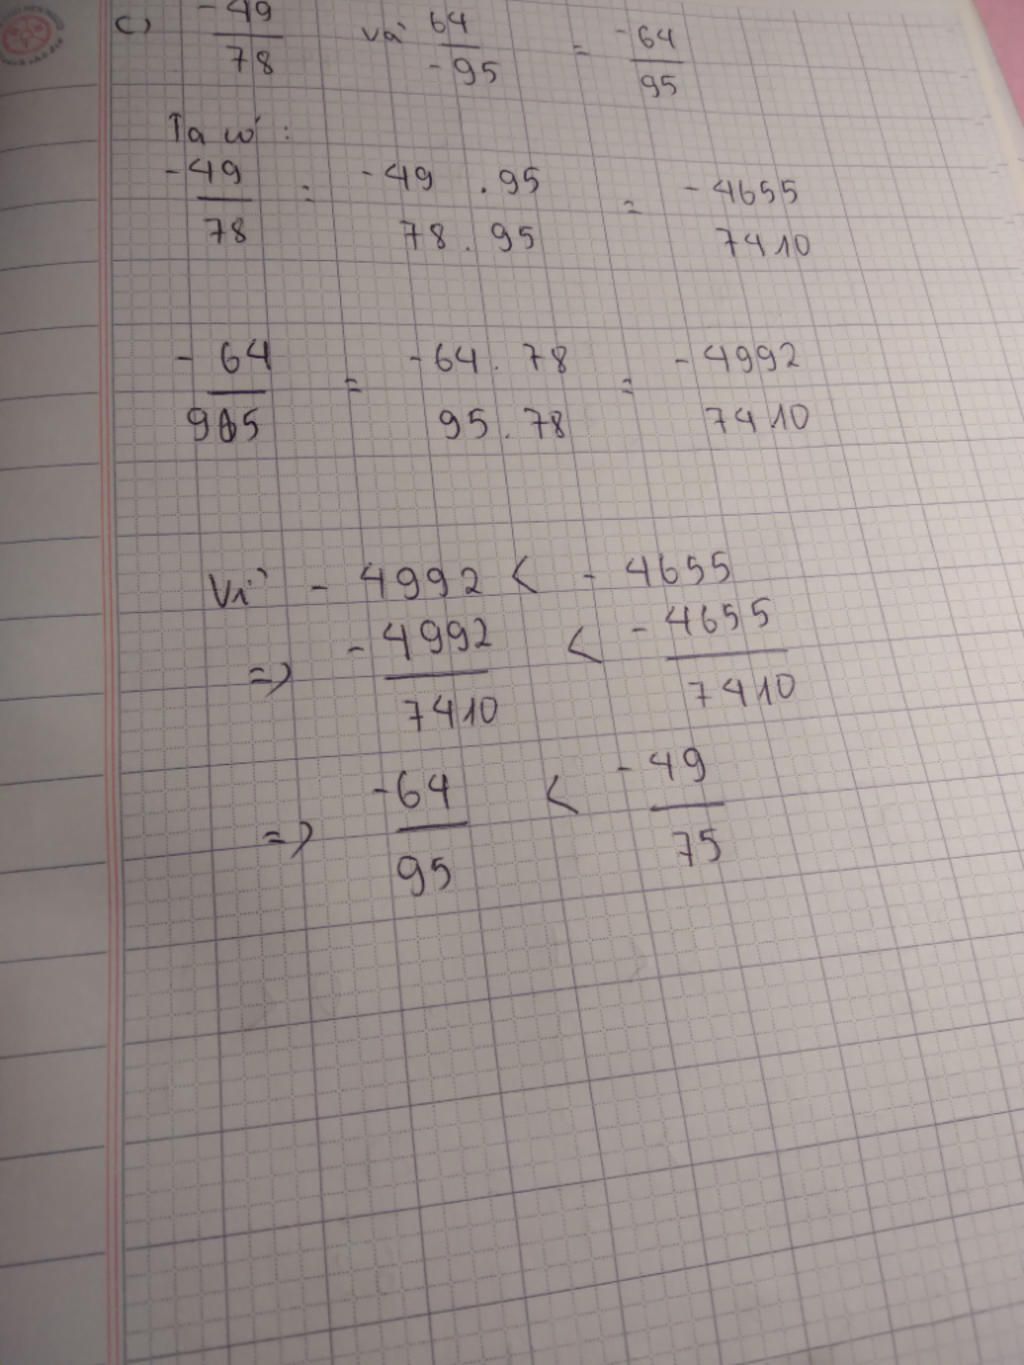 c) -49/78 và 64/-95 = -64/95
Ta có :
-49/78 = -49 . 95 / 78 . 95 = -4655 / 7410
-64/95 = -64 . 78 / 95 . 78 = -4992 / 7410
Vì -4992 < -4655
=> -4992/7410 < -4655/7410
=> -64/95 < -49/75